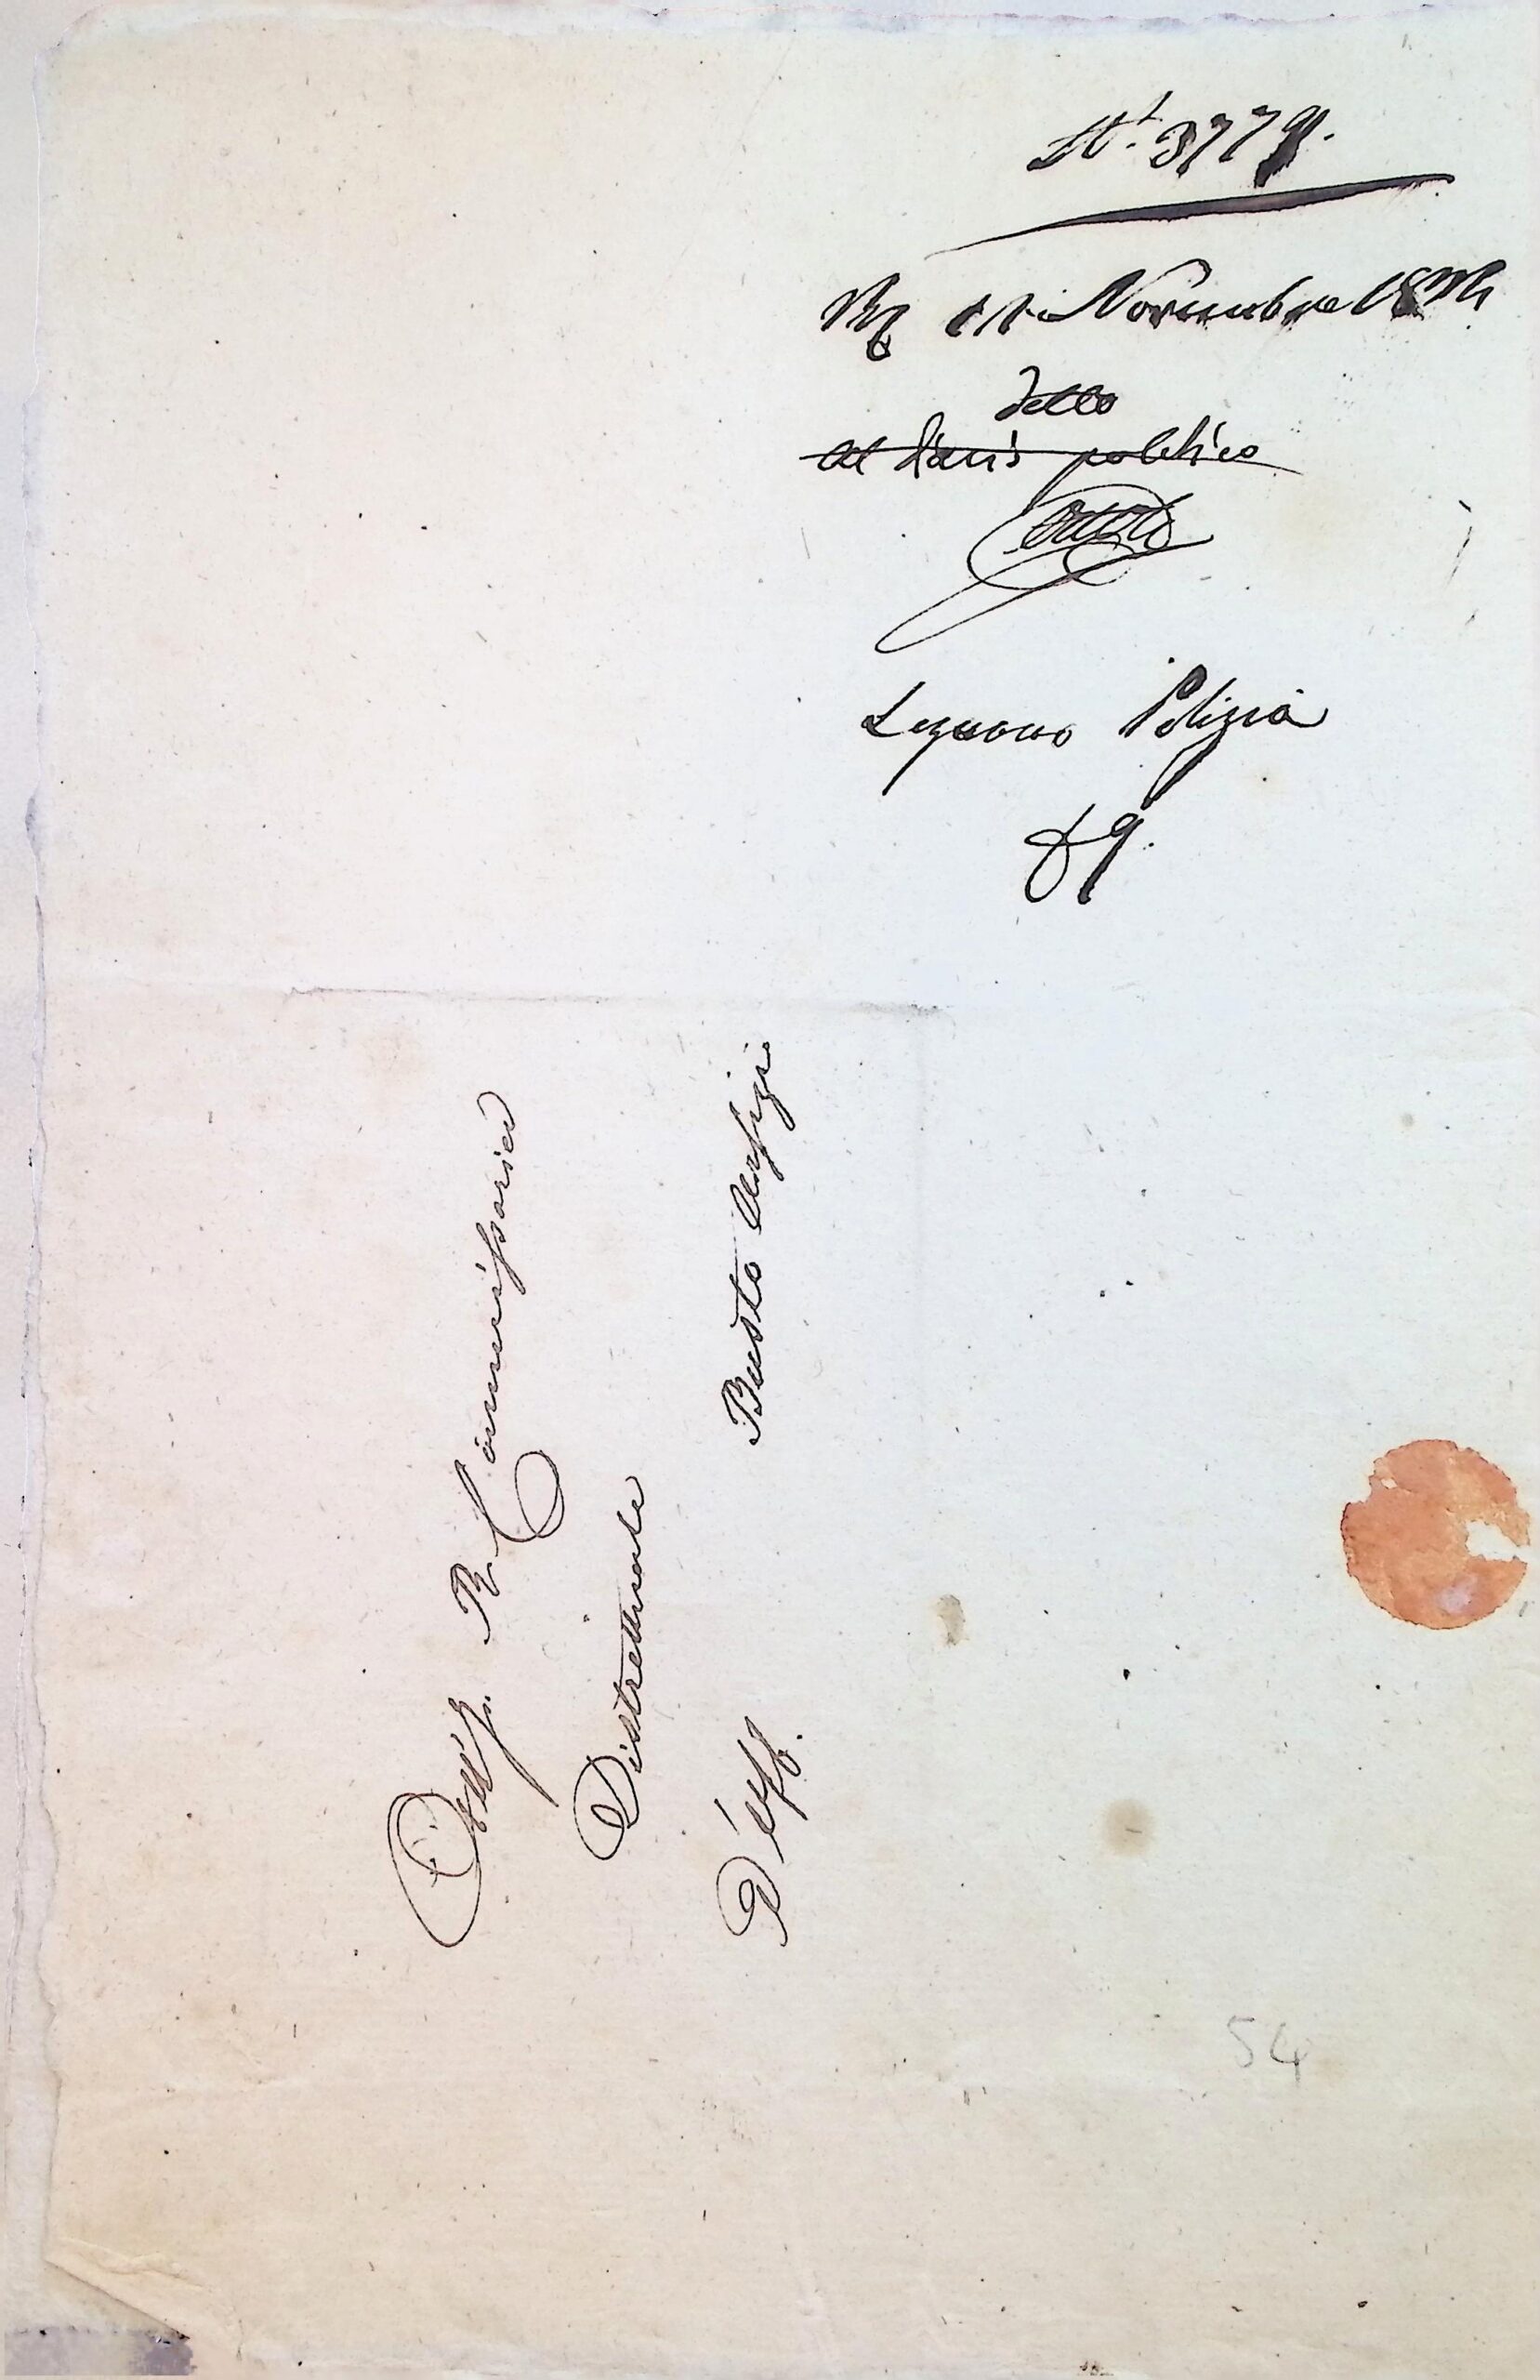 N.° 3779.
11 Novembre 18
detto
al Diario politico
Legnano Polizia
69.
All' I. R. Commissario
Distrettuale
D'uff.
Busto Arsizio
54